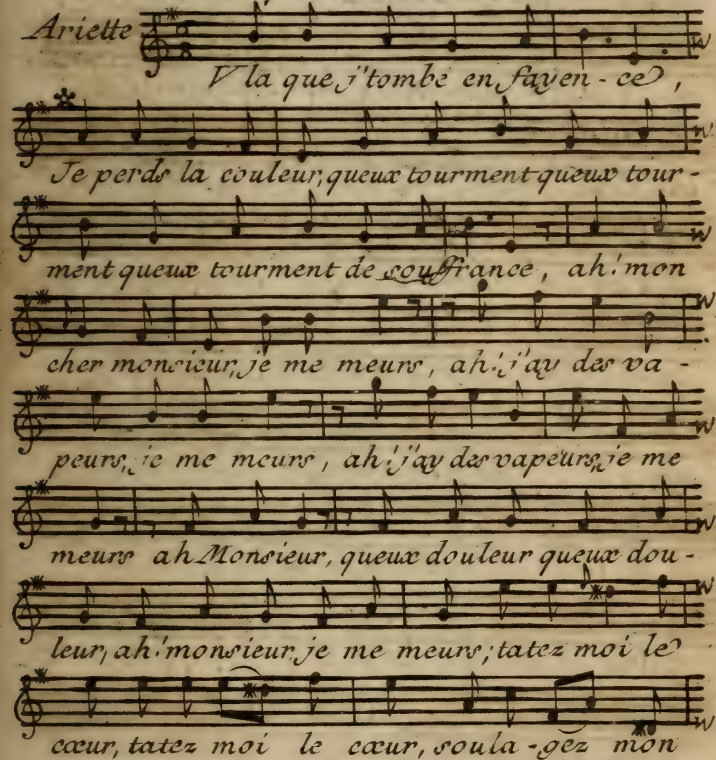 Ariette
V'la que j'tombe en fayen-ce,
Je perds la couleur, queux tourment queux tour-
ment queux tourment de souffrance, ah! mon
cher monsieur, je me meurs, ah! j'ay des va-
peurs, je me meurs, ah! j'ay des vapeurs, je me
meurs ah Monsieur, queux douleur queux dou-
leur, ah! monsieur je me meurs; tatez moi le
cœur, tatez moi le cœur, soula-gez mon